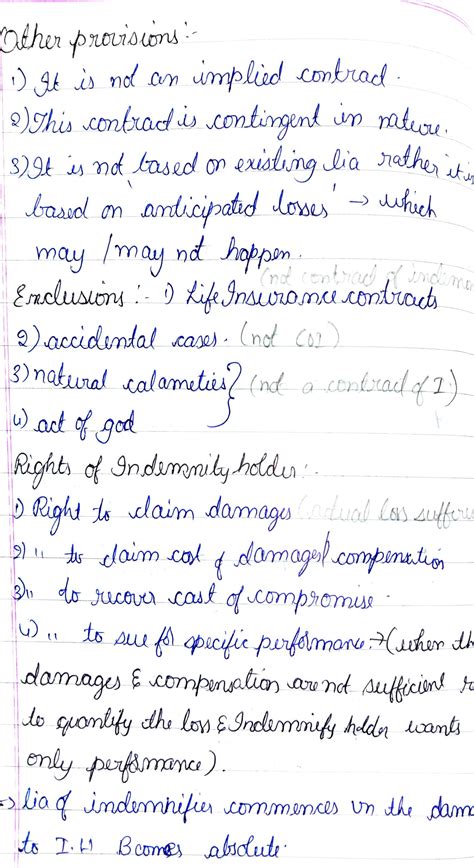 Other provisions :-
1) It is not an implied contract.
2) This contract is contingent in nature.
3) It is not based on existing lia rather it is
based on 'anticipated losses' → which
may / may not happen.
(not contract of indem
Exclusions :- 1) Life Insurance contracts
2) accidental cases. (not COI)
3) natural calameties } (not a contract of I.)
4) act of god
Rights of Indemnity holder :-
1) Right to claim damages (actual loss suffere
2) " to claim cost of damages / compensation
3) " to recover cost of compromise.
4) " to sue for specific performance. → (when th
damages & compensation are not sufficient
to quantify the loss & Indemnify holder wants
only performance).
=> lia of indemnifier commences un the dam
to I.H Bcomes absolute.